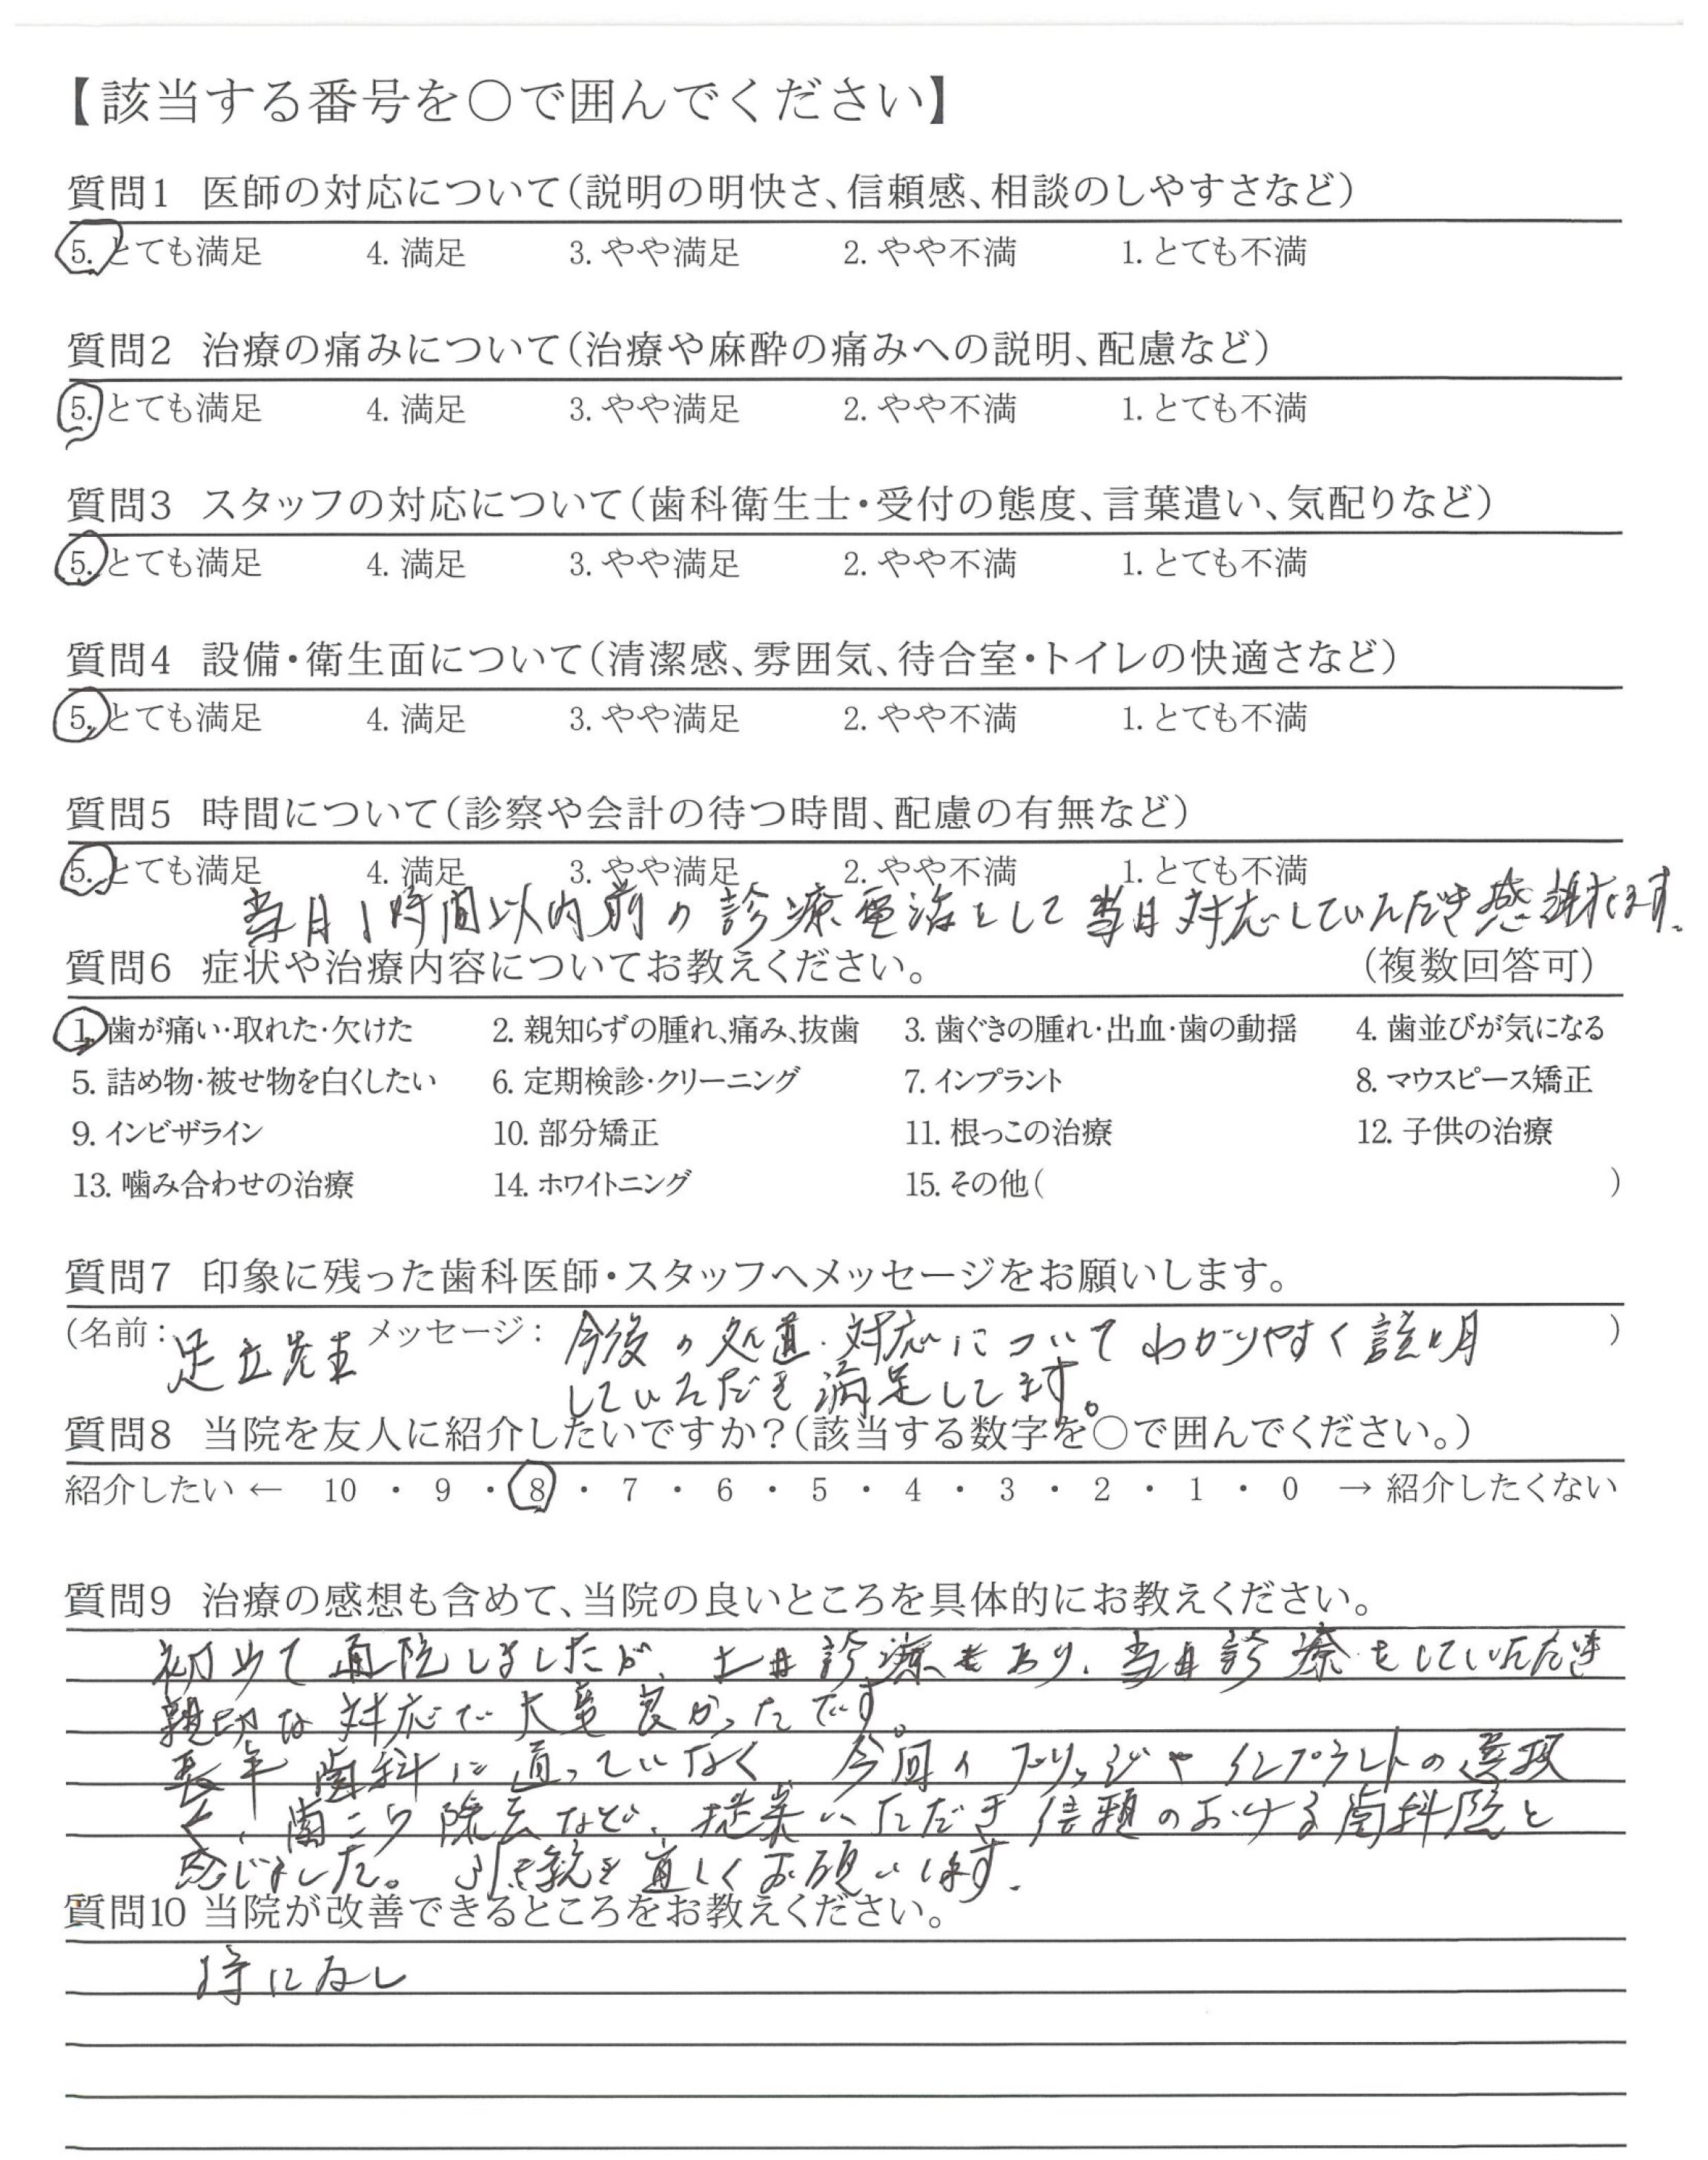 【該当する番号を〇で囲んでください】
質問1 医師の対応について（説明の明快さ、信頼感、相談のしやすさなど）
5. とても満足 4. 満足 3. やや満足 2. やや不満 1. とても不満
質問2 治療の痛みについて（治療や麻酔の痛みへの説明、配慮など）
5. とても満足 4. 満足 3. やや満足 2. やや不満 1. とても不満
質問3 スタッフの対応について（歯科衛生士・受付の態度、言葉遣い、気配りなど）
5. とても満足 4. 満足 3. やや満足 2. やや不満 1. とても不満
質問4 設備・衛生面について（清潔感、雰囲気、待合室・トイレの快適さなど）
5. とても満足 4. 満足 3. やや満足 2. やや不満 1. とても不満
質問5 時間について（診察や会計の待つ時間、配慮の有無など）
5. とても満足 4. 満足 3. やや満足 2. やや不満 1. とても不満
当日1時間以内前の診療電話をして当日対応していただき感謝です。
質問6 症状や治療内容についてお教えください。 （複数回答可）
1. 歯が痛い・取れた・欠けた 2. 親知らずの腫れ、痛み、抜歯 3. 歯ぐきの腫れ・出血・歯の動揺 4. 歯並びが気になる
5. 詰め物・被せ物を白くしたい 6. 定期検診・クリーニング 7. インプラント 8. マウスピース矯正
9. インビザライン 10. 部分矯正 11. 根っこの治療 12. 子供の治療
13. 噛み合わせの治療 14. ホワイトニング 15. その他（ ）
質問7 印象に残った歯科医師・スタッフへメッセージをお願いします。
（名前： 足立先生 メッセージ： 今後の処置・対応についてわかりやすく説明 ）
していただき満足してます。
質問8 当院を友人に紹介したいですか？（該当する数字を〇で囲んでください。）
紹介したい ← 10 ・ 9 ・ 8 ・ 7 ・ 6 ・ 5 ・ 4 ・ 3 ・ 2 ・ 1 ・ 0 → 紹介したくない
質問9 治療の感想も含めて、当院の良いところを具体的にお教えください。
初めて通院しましたが、土日診療もあり、当日診療をしていただき
親切な対応で大変良かったです。
長年歯科に通っていなく、今回のブリッジやインプラントの選択
と、歯こう除去など、提案いただき信頼のおける歯科医院と
感じました。引き続き宜しくお願いします。
質問10 当院が改善できるところをお教えください。
特になし